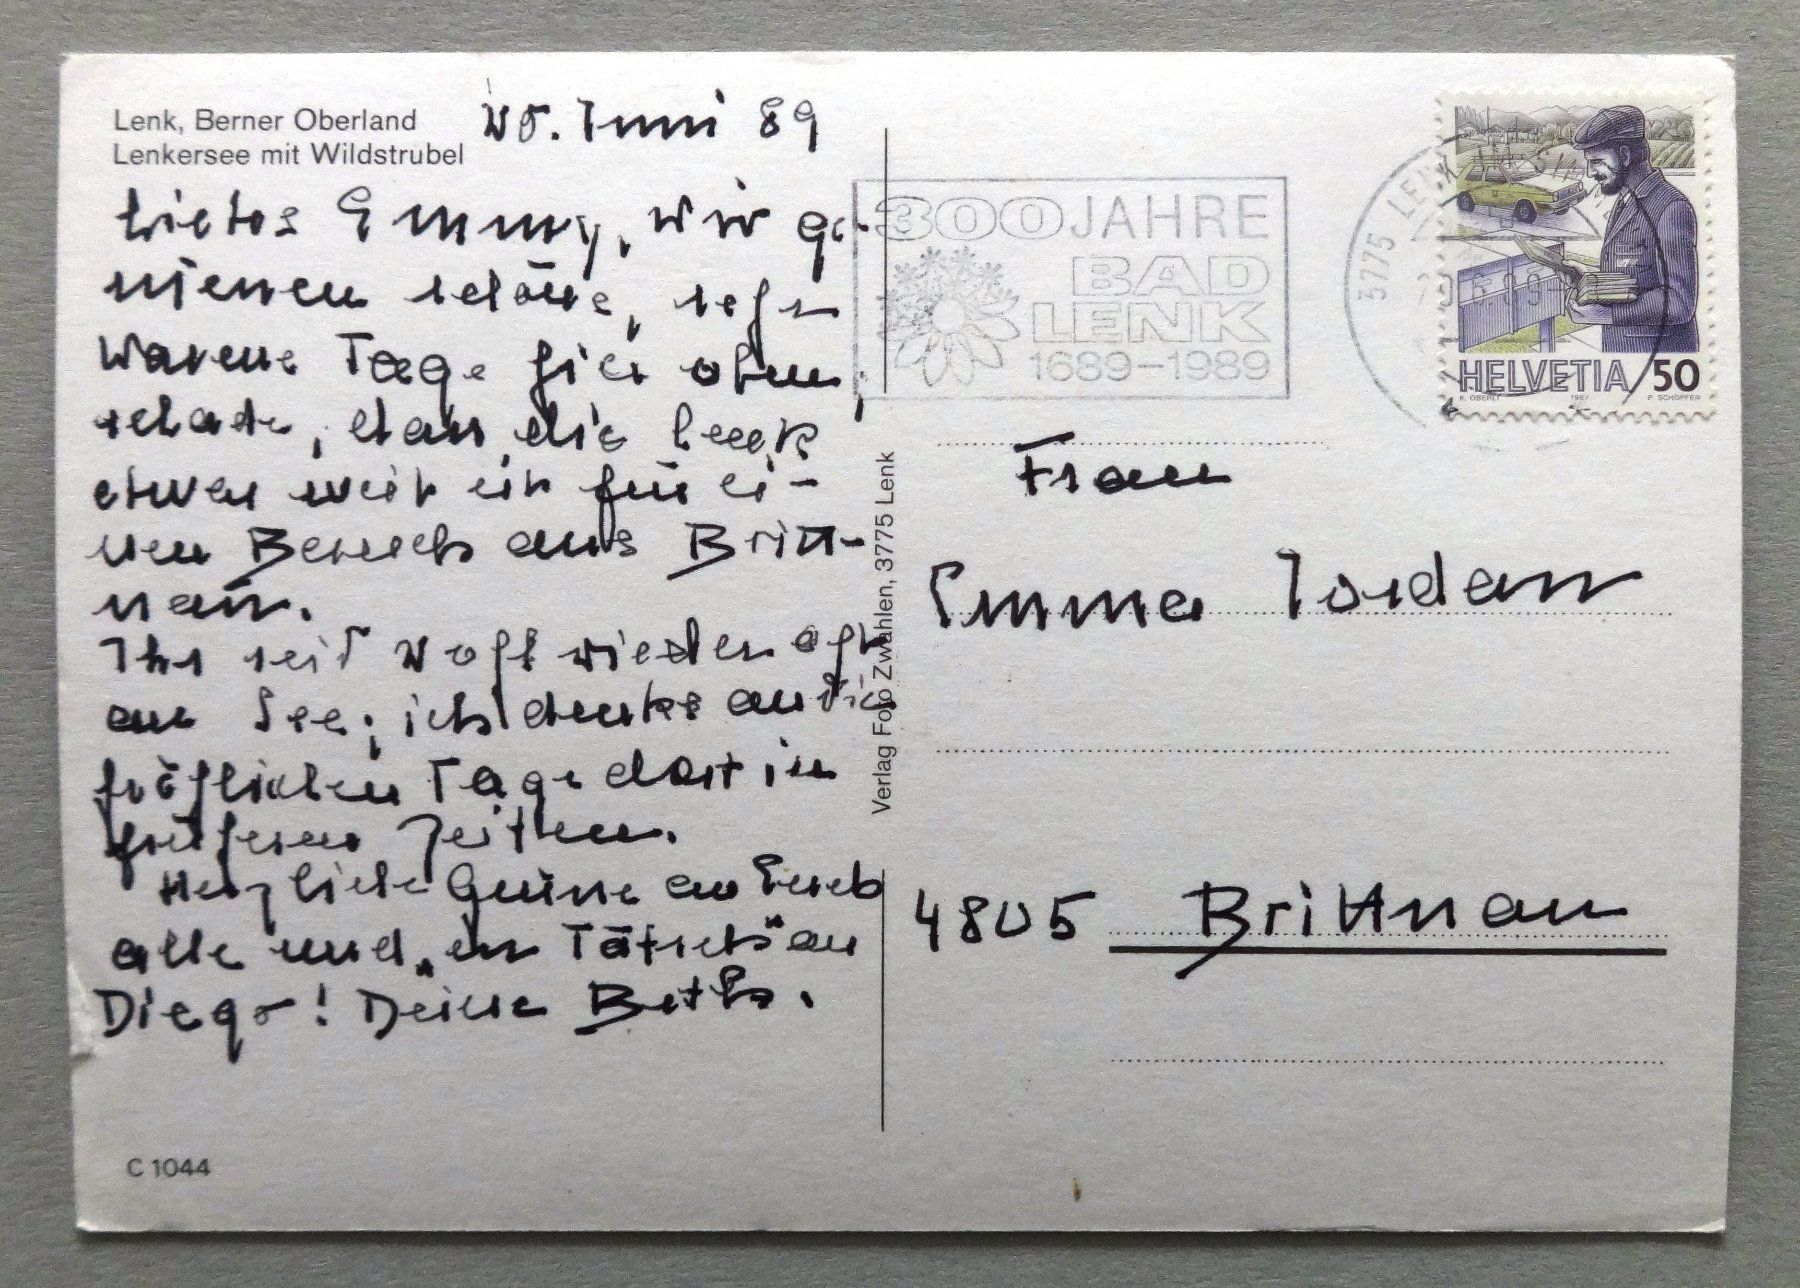 Lenk, Berner Oberland
Lenkersee mit Wildstrubel
25. Juni 89
Liebes Emmy, wir ge-
niessen schöne, sehr
warme Tage hier oben,
schade, dass die Lenk
etwas weit ist für ei-
nen Besuch aus Britt-
nau.
Ihr seid wohl wieder oft
am See; ich denke an die
fröhlichen Tage dort in
früheren Zeiten.
Herzliche Grüsse an Euch
alle und „en Tätsch" an
Diego! Deine Beth.
C 1044
Verlag Foto Zwahlen, 3775 Lenk
300 JAHRE
BAD
LENK
1689-1989
3775 LENK
HELVETIA 50
K. OBERLI 1987 P. SCHÖPFER
Frau
Emma Jordan
4805 Brittnau